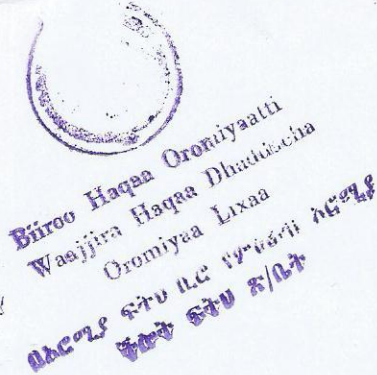 Biiroo Haqaa Oromiyaatti
Waajjira Haqaa Dhaddacha
Oromiyaa Lixaa
በኦሮሚያ ፍትህ ቢሮ የምዕራብ ኦሮሚያ
ችሎት ፍትህ ጽ/ቤት